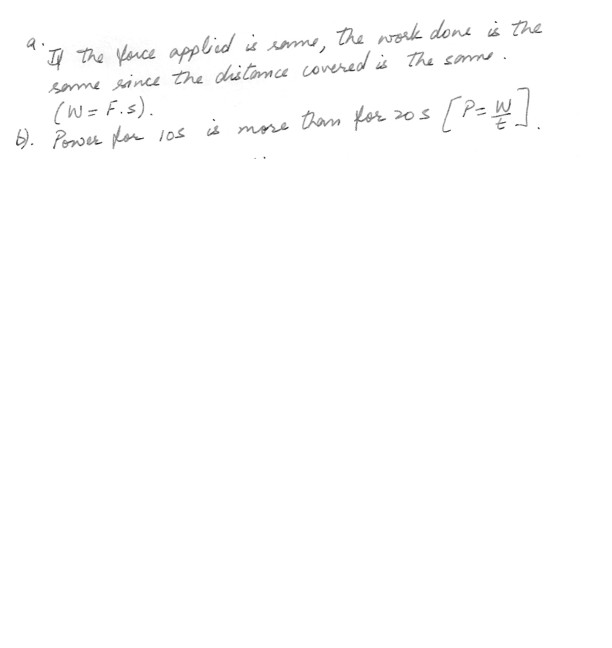 a. If the force applied is same, the work done is the
same since the distance covered is the same.
(W = F.s).
b). Power for 10s is more than for 20s [P = W/t].